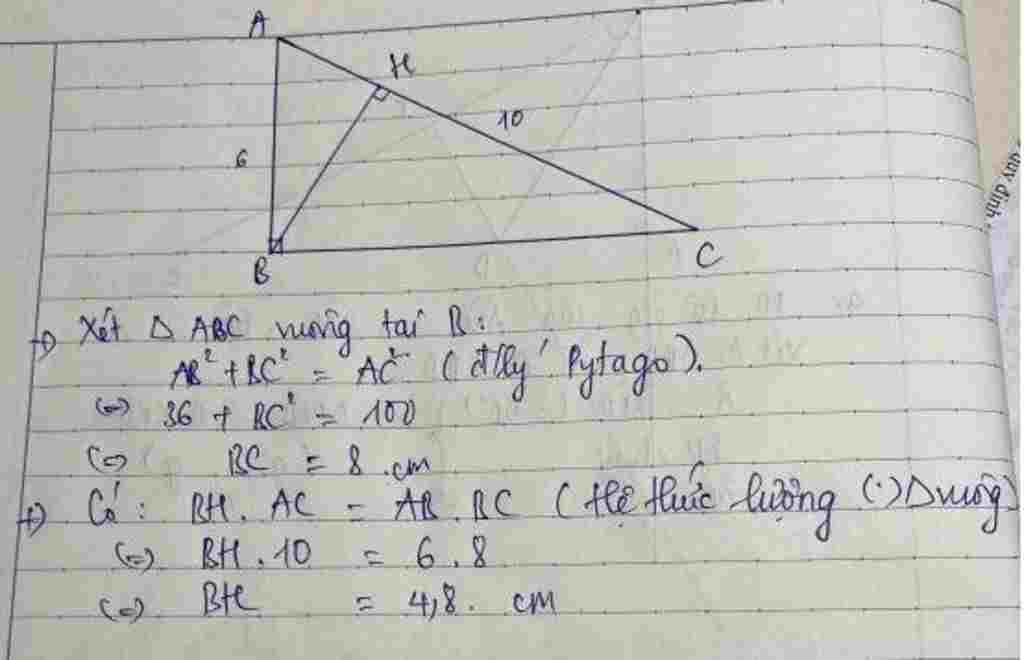 A
H
10
6
B
C
quy định
+) Xét Δ ABC vuông tại B:
AB² + BC² = AC² (đ/lý Pytago).
(=) 36 + BC² = 100
(=) BC = 8 cm
+) Có: BH . AC = AB . BC (Hệ thức lượng (·) Δ vuông)
(=) BH . 10 = 6 . 8
(=) BH = 4,8 . cm